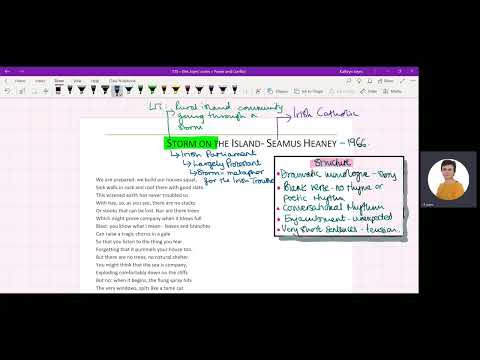 Y10 – Eng Joyes' scores » Power and Conflict
Kathryn Joyes
Class Notebook
Shapes
Ink to Shape
Ink to Math
LIT: Rural island community
going through a
storm
Irish Catholic
STORM ON THE ISLAND- SEAMUS HEANEY – 1966.
↳ Irish Parliament
↳ Largely Protestant
↳ Storm - metaphor
for the Irish Troubles
Structure
• Dramatic monologue - story
• Blank verse - no rhyme or
poetic rhythm
• Conversational rhythm
• Enjambment - unexpected
• Very short sentences - tension
We are prepared: we build our houses squat,
Sink walls in rock and roof them with good slate.
This wizened earth has never troubled us
With hay, so, as you see, there are no stacks
Or stooks that can be lost. Nor are there trees
Which might prove company when it blows full
Blast: you know what I mean - leaves and branches
Can raise a tragic chorus in a gale
So that you listen to the thing you fear
Forgetting that it pummels your house too.
But there are no trees, no natural shelter.
You might think that the sea is company,
Exploding comfortably down on the cliffs
But no: when it begins, the flung spray hits
The very windows, spits like a tame cat